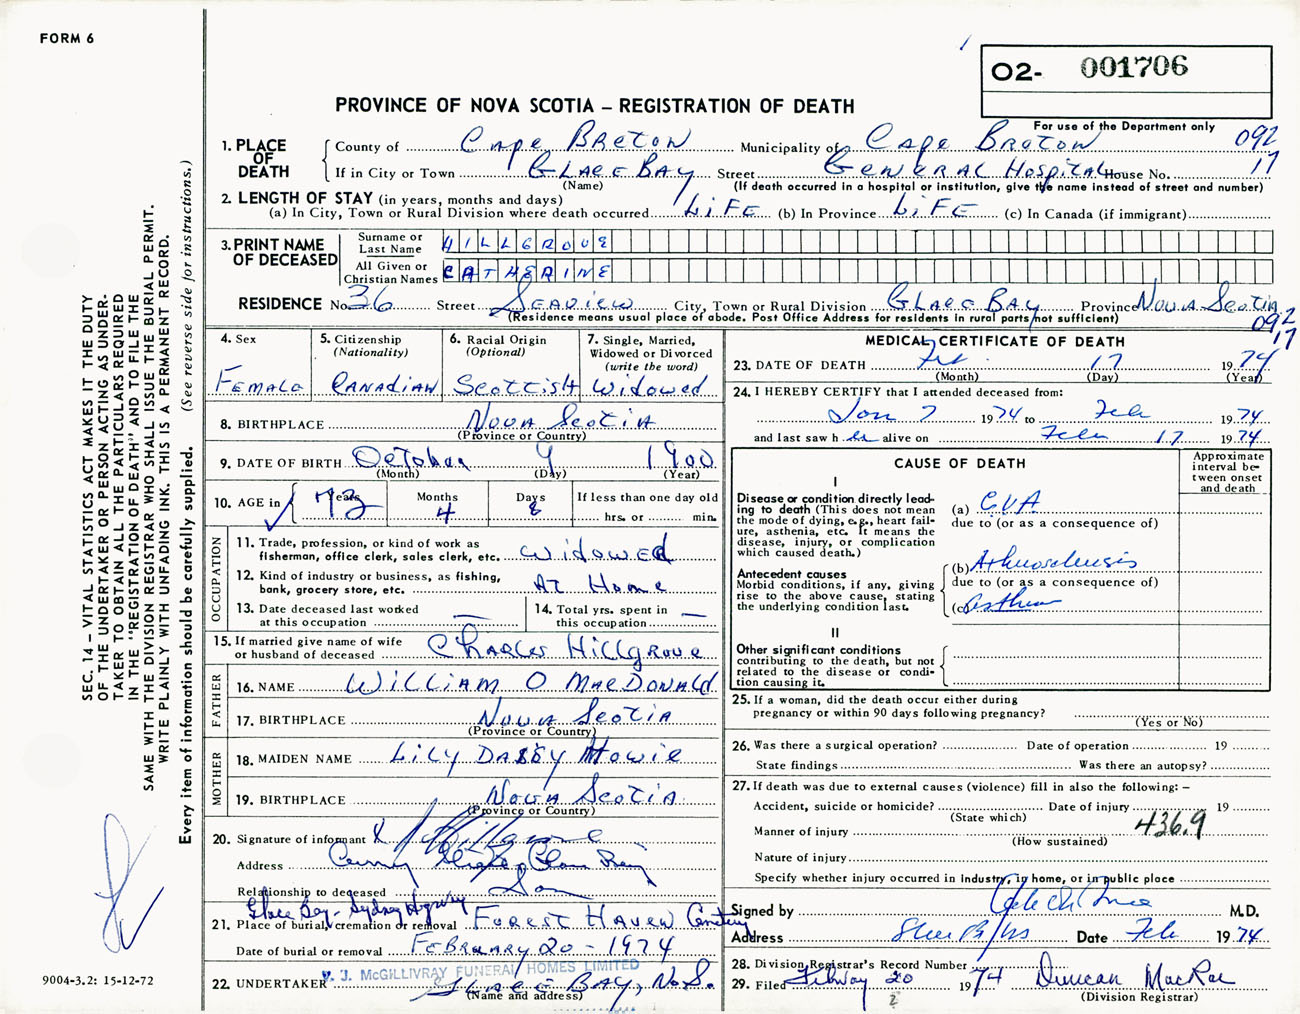 FORM 6
O2- 001706
PROVINCE OF NOVA SCOTIA – REGISTRATION OF DEATH
For use of the Department only
092
17
1. PLACE OF DEATH
County of Cape Breton Municipality of Cape Breton
If in City or Town Glace Bay Street General Hospital House No.
(Name) (If death occurred in a hospital or institution, give the name instead of street and number)
2. LENGTH OF STAY (in years, months and days)
(a) In City, Town or Rural Division where death occurred LiFe (b) In Province LiFe (c) In Canada (if immigrant)
3. PRINT NAME OF DECEASED
Surname or Last Name HILLGROVE
All Given or Christian Names CATHERINE
RESIDENCE No. 36 Street Seaview City, Town or Rural Division Glace Bay Province Nova Scotia
(Residence means usual place of abode. Post Office Address for residents in rural parts not sufficient)
092
17
4. Sex Female
5. Citizenship (Nationality) Canadian
6. Racial Origin (Optional) Scottish
7. Single, Married, Widowed or Divorced (write the word) Widowed
8. BIRTHPLACE Nova Scotia
(Province or Country)
9. DATE OF BIRTH October 9 1900
(Month) (Day) (Year)
10. AGE in Years 73 Months 4 Days 8 If less than one day old
hrs. or min.
OCCUPATION
11. Trade, profession, or kind of work as fisherman, office clerk, sales clerk, etc. Widowed
12. Kind of industry or business, as fishing, bank, grocery store, etc. At Home
13. Date deceased last worked at this occupation — 14. Total yrs. spent in this occupation —
15. If married give name of wife or husband of deceased Charles Hillgrove
FATHER
16. NAME William O MacDonald
17. BIRTHPLACE Nova Scotia
(Province or Country)
MOTHER
18. MAIDEN NAME Lily Howie
19. BIRTHPLACE Nova Scotia
(Province or Country)
20. Signature of informant X Hillgrove
Address
Relationship to deceased Son
Glace Bay - Sydney Highway
21. Place of burial, cremation or removal Forest Haven Cemetery
Date of burial or removal February 20 - 1974
V. J. McGILLIVRAY FUNERAL HOMES LIMITED
22. UNDERTAKER Glace Bay, N.S.
(Name and address)
MEDICAL CERTIFICATE OF DEATH
23. DATE OF DEATH Feb 17 1974
(Month) (Day) (Year)
24. I HEREBY CERTIFY that I attended deceased from:
Jan 7 1974 to Feb 1974
and last saw her alive on Feb 17 1974
CAUSE OF DEATH
Approximate interval between onset and death
I
Disease or condition directly leading to death (This does not mean the mode of dying, e.g., heart failure, asthenia, etc. It means the disease, injury, or complication which caused death.)
(a) CVA
due to (or as a consequence of)
Antecedent causes
Morbid conditions, if any, giving rise to the above cause, stating the underlying condition last.
(b) Arteriosclerosis
due to (or as a consequence of)
(c) Asthma
II
Other significant conditions
contributing to the death, but not related to the disease or condition causing it.
25. If a woman, did the death occur either during pregnancy or within 90 days following pregnancy?
(Yes or No)
26. Was there a surgical operation? Date of operation 19
State findings Was there an autopsy?
27. If death was due to external causes (violence) fill in also the following: –
Accident, suicide or homicide? Date of injury 19
(State which)
436.9
Manner of injury
(How sustained)
Nature of injury
Specify whether injury occurred in industry, in home, or in public place
Signed by M.D.
Address Date Feb 1974
28. Division Registrar's Record Number
29. Filed February 20 1974 Duncan MacRae
(Division Registrar)
SEC. 14 – VITAL STATISTICS ACT MAKES IT THE DUTY
OF THE UNDERTAKER OR PERSON ACTING AS UNDER-
TAKER TO OBTAIN ALL THE PARTICULARS REQUIRED
IN THE "REGISTRATION OF DEATH" AND TO FILE THE
SAME WITH THE DIVISION REGISTRAR WHO SHALL ISSUE THE BURIAL PERMIT.
WRITE PLAINLY WITH UNFADING INK. THIS IS A PERMANENT RECORD.
Every item of information should be carefully supplied. (See reverse side for instructions.)
9004-3.2: 15-12-72